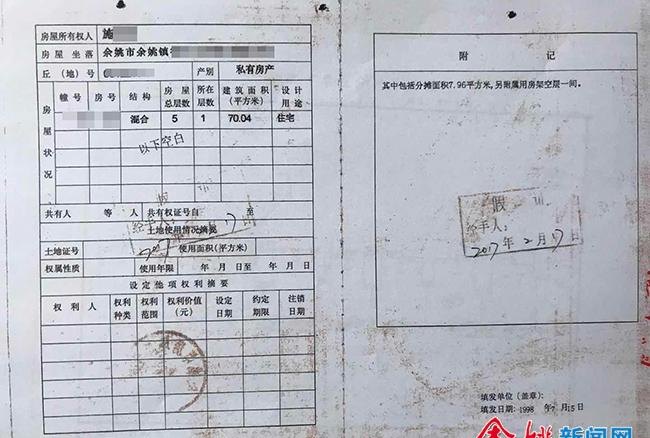 房屋所有权人 施
房屋坐落 余姚市余姚镇
丘（地）号 产别 私有房产
房屋状况
幢号 房号 结构 房屋总层数 所在层数 建筑面积（平方米） 设计用途
混合 5 1 70.04 住宅
以下空白
共有人 等 人 共有权证号自 至
土地使用情况摘要
土地证号 使用面积（平方米）
权属性质 使用年限 年 月 日至 年 月 日
设定他项权利摘要
权利人 权利种类 权利范围 权利价值（元） 设定日期 约定期限 注销日期
附记
其中包括分摊面积7.96平方米,另附属用房架空层一间。
假
经手人:
2017年2月17日
填发单位（盖章）：
填发日期：1998 年7月15日
余姚新闻网